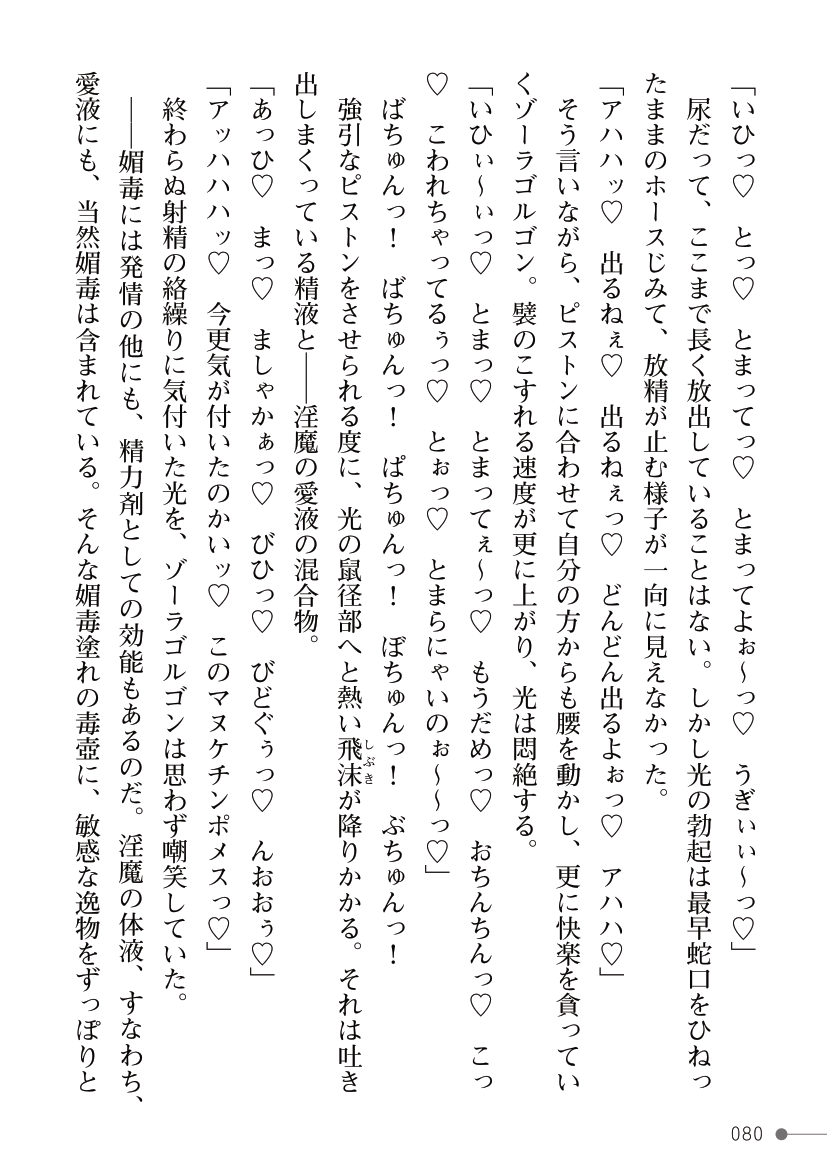 「いひっ♡　とっ♡　とまってっ♡　とまってよぉ～っ♡　うぎぃぃ～っ♡」
　尿だって、ここまで長く放出していることはない。しかし光の勃起は最早蛇口をひねっ
たままのホースじみて、放精が止む様子が一向に見えなかった。
「アハハッ♡　出るねぇ♡　出るねぇっ♡　どんどん出るよぉっ♡　アハハ♡」
　そう言いながら、ピストンに合わせて自分の方からも腰を動かし、更に快楽を貪ってい
くゾーラゴルゴン。襞のこすれる速度が更に上がり、光は悶絶する。
「いひぃ～ぃっ♡　とまっ♡　とまってぇ～っ♡　もうだめっ♡　おちんちんっ♡　こっ
♡　こわれちゃってるぅっ♡　とぉっ♡　とまらにゃいのぉ～～っ♡」
　ばちゅんっ！　ばちゅんっ！　ぱちゅんっ！　ぼちゅんっ！　ぶちゅんっ！
　強引なピストンをさせられる度に、光の鼠径部へと熱い飛沫しぶきが降りかかる。それは吐き
出しまくっている精液と――淫魔の愛液の混合物。
「あっひ♡　まっ♡　ましゃかぁっ♡　びひっ♡　びどぐぅっ♡　んおおぅ♡」
「アッハハハッ♡　今更気が付いたのかいッ♡　このマヌケチンポメスっ♡」
　終わらぬ射精の絡繰りに気付いた光を、ゾーラゴルゴンは思わず嘲笑していた。
　――媚毒には発情の他にも、精力剤としての効能もあるのだ。淫魔の体液、すなわち、
愛液にも、当然媚毒は含まれている。そんな媚毒塗れの毒壺に、敏感な逸物をずっぽりと
080